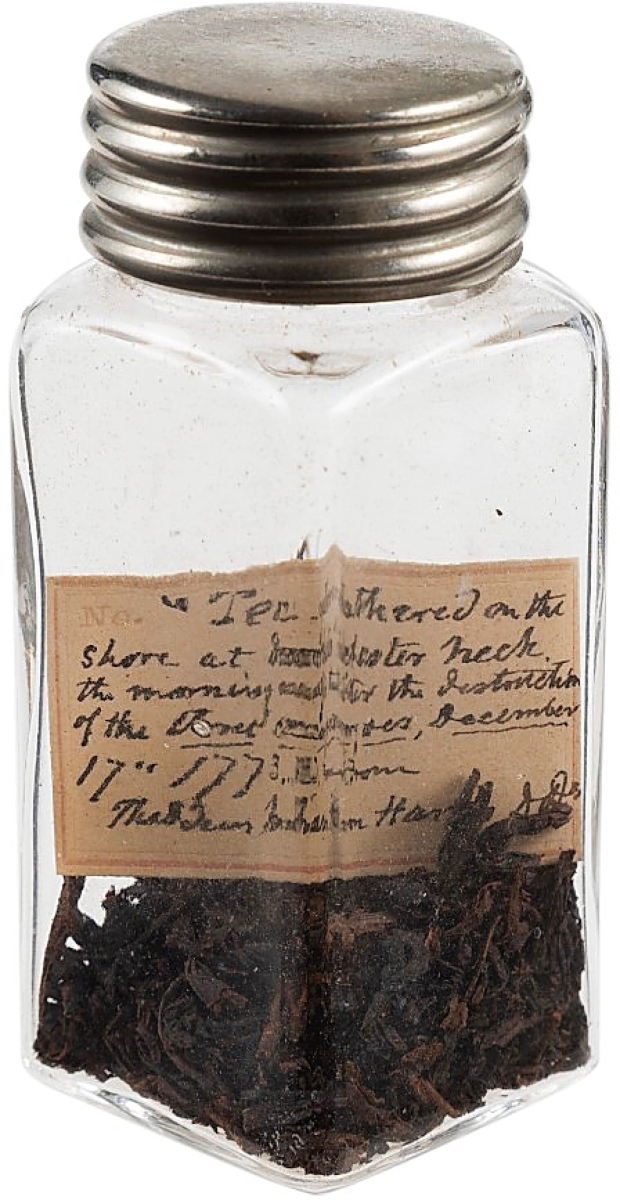 No. " Tea Gathered on the
shore at Dorchester Neck.
the morning after the destruction
of the Three cargoes, December
17" 1773. From
Thaddeus Harris D.D.